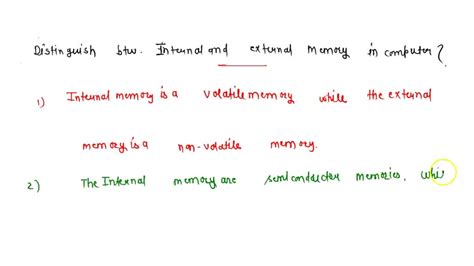 Distinguish btw. Internal and external memory in computer?
1) Internal memory is a volatile memory while the external
memory is a non-volatile memory.
2) The Internal memory are semiconductor memories, whi